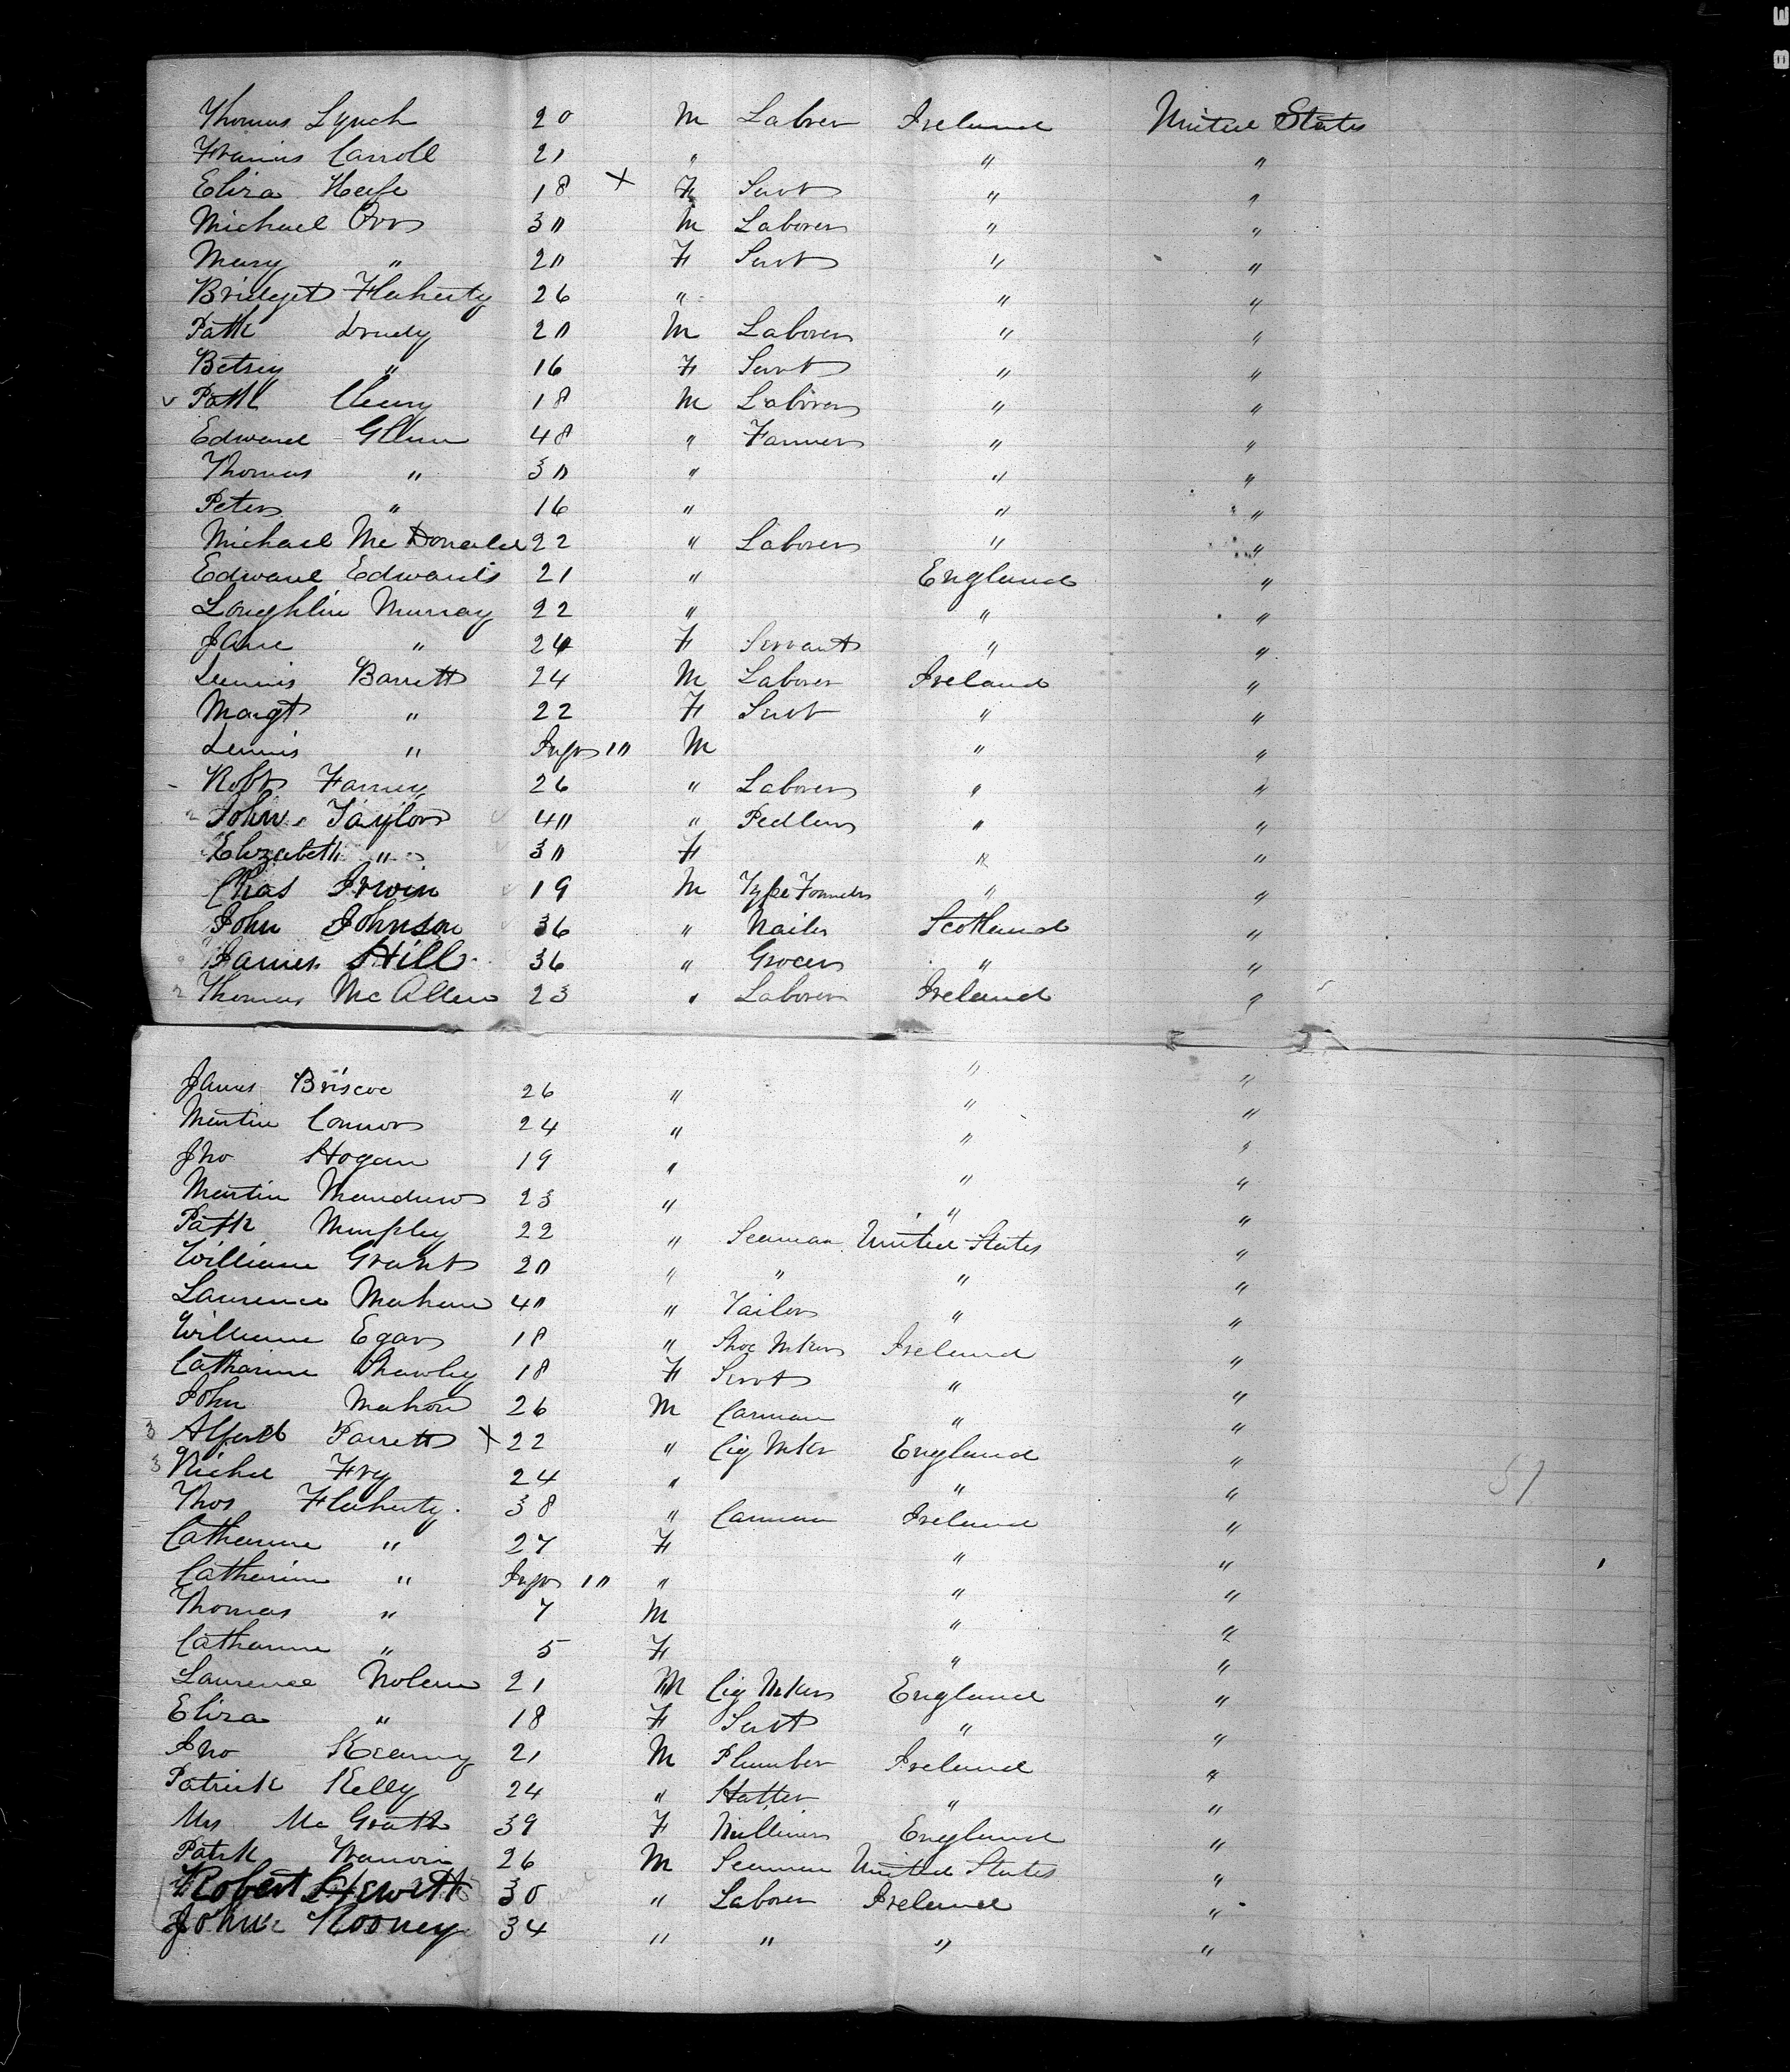 Thomas Lynch 20 M Labrer Ireland United States
Francis Carroll 21 " " "
Eliza Keefe 18 X F Servt " "
Michael Orr 30 M Laborer " "
Mary " 20 F Servt " "
Bridget Flaherty 26 " " "
Patk Drudy 20 M Laborer " "
Betsey " 16 F Servt " "
Patk Cleary 18 M Laborer " "
Edward Glenn 48 " Farmer " "
Thomas " 30 " " "
Peter " 16 " " "
Michael McDonald 22 " Laborer " "
Edward Edwards 21 " England "
Loughlin Murray 22 " " "
Jane " 24 F Servant " "
Dennis Barrett 24 M Laborer Ireland "
Margt " 22 F Servt " "
Dennis " Inft 10 M " "
Robt Farney 26 " Laborer " "
John Taylor 40 " Pedler " "
Elizabeth " 30 F " "
Chas Irwin 19 M Type Founder " "
John Johnson 36 " Nailer Scotland "
James Hill 36 " Grocer " "
Thomas McAllen 23 " Laborer Ireland "
James Briscoe 26 " " "
Martin Connor 24 " " "
Jno Hogan 19 " " "
Martin 23 " " "
Patk Murphy 22 " " "
William Grant 20 " Seaman United States "
Laurence Mahan 40 " " " "
William Egan 18 " Tailor " "
Catharine 18 F Shoe Mker Ireland "
John Mahon 26 M Servt " "
3 Alfred Parrett X 22 " Carman " "
3 Richd Fry 24 " Cig Mkr England "
Thos Flaherty 38 " " "
Catharine " 27 F Carman Ireland "
Catharine " Inft 10 " " "
Thomas " 7 M " "
Catharine " 5 F " "
Laurence Nolan 21 M Cig Mker England "
Eliza " 18 F Servt " "
Jno Kearny 21 M Plumber Ireland "
Patrick Kelly 24 " Hatter " "
Mrs McGrath 39 F Milliner England "
Patrk 26 M Seaman United States "
Robert Hewitt 30 " Laborer Ireland "
John Rooney 34 " " " "